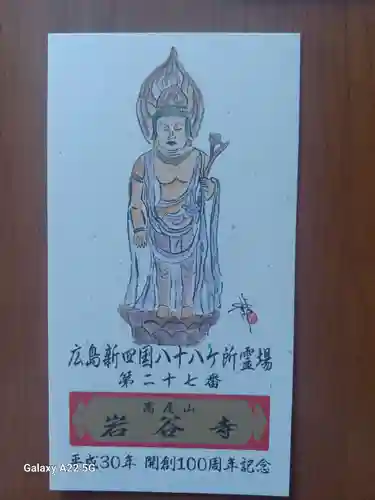 広島新四国八十八ケ所霊場
第二十七番
高尾山
岩谷寺
平成30年 開創100周年記念
Galaxy A22 5G